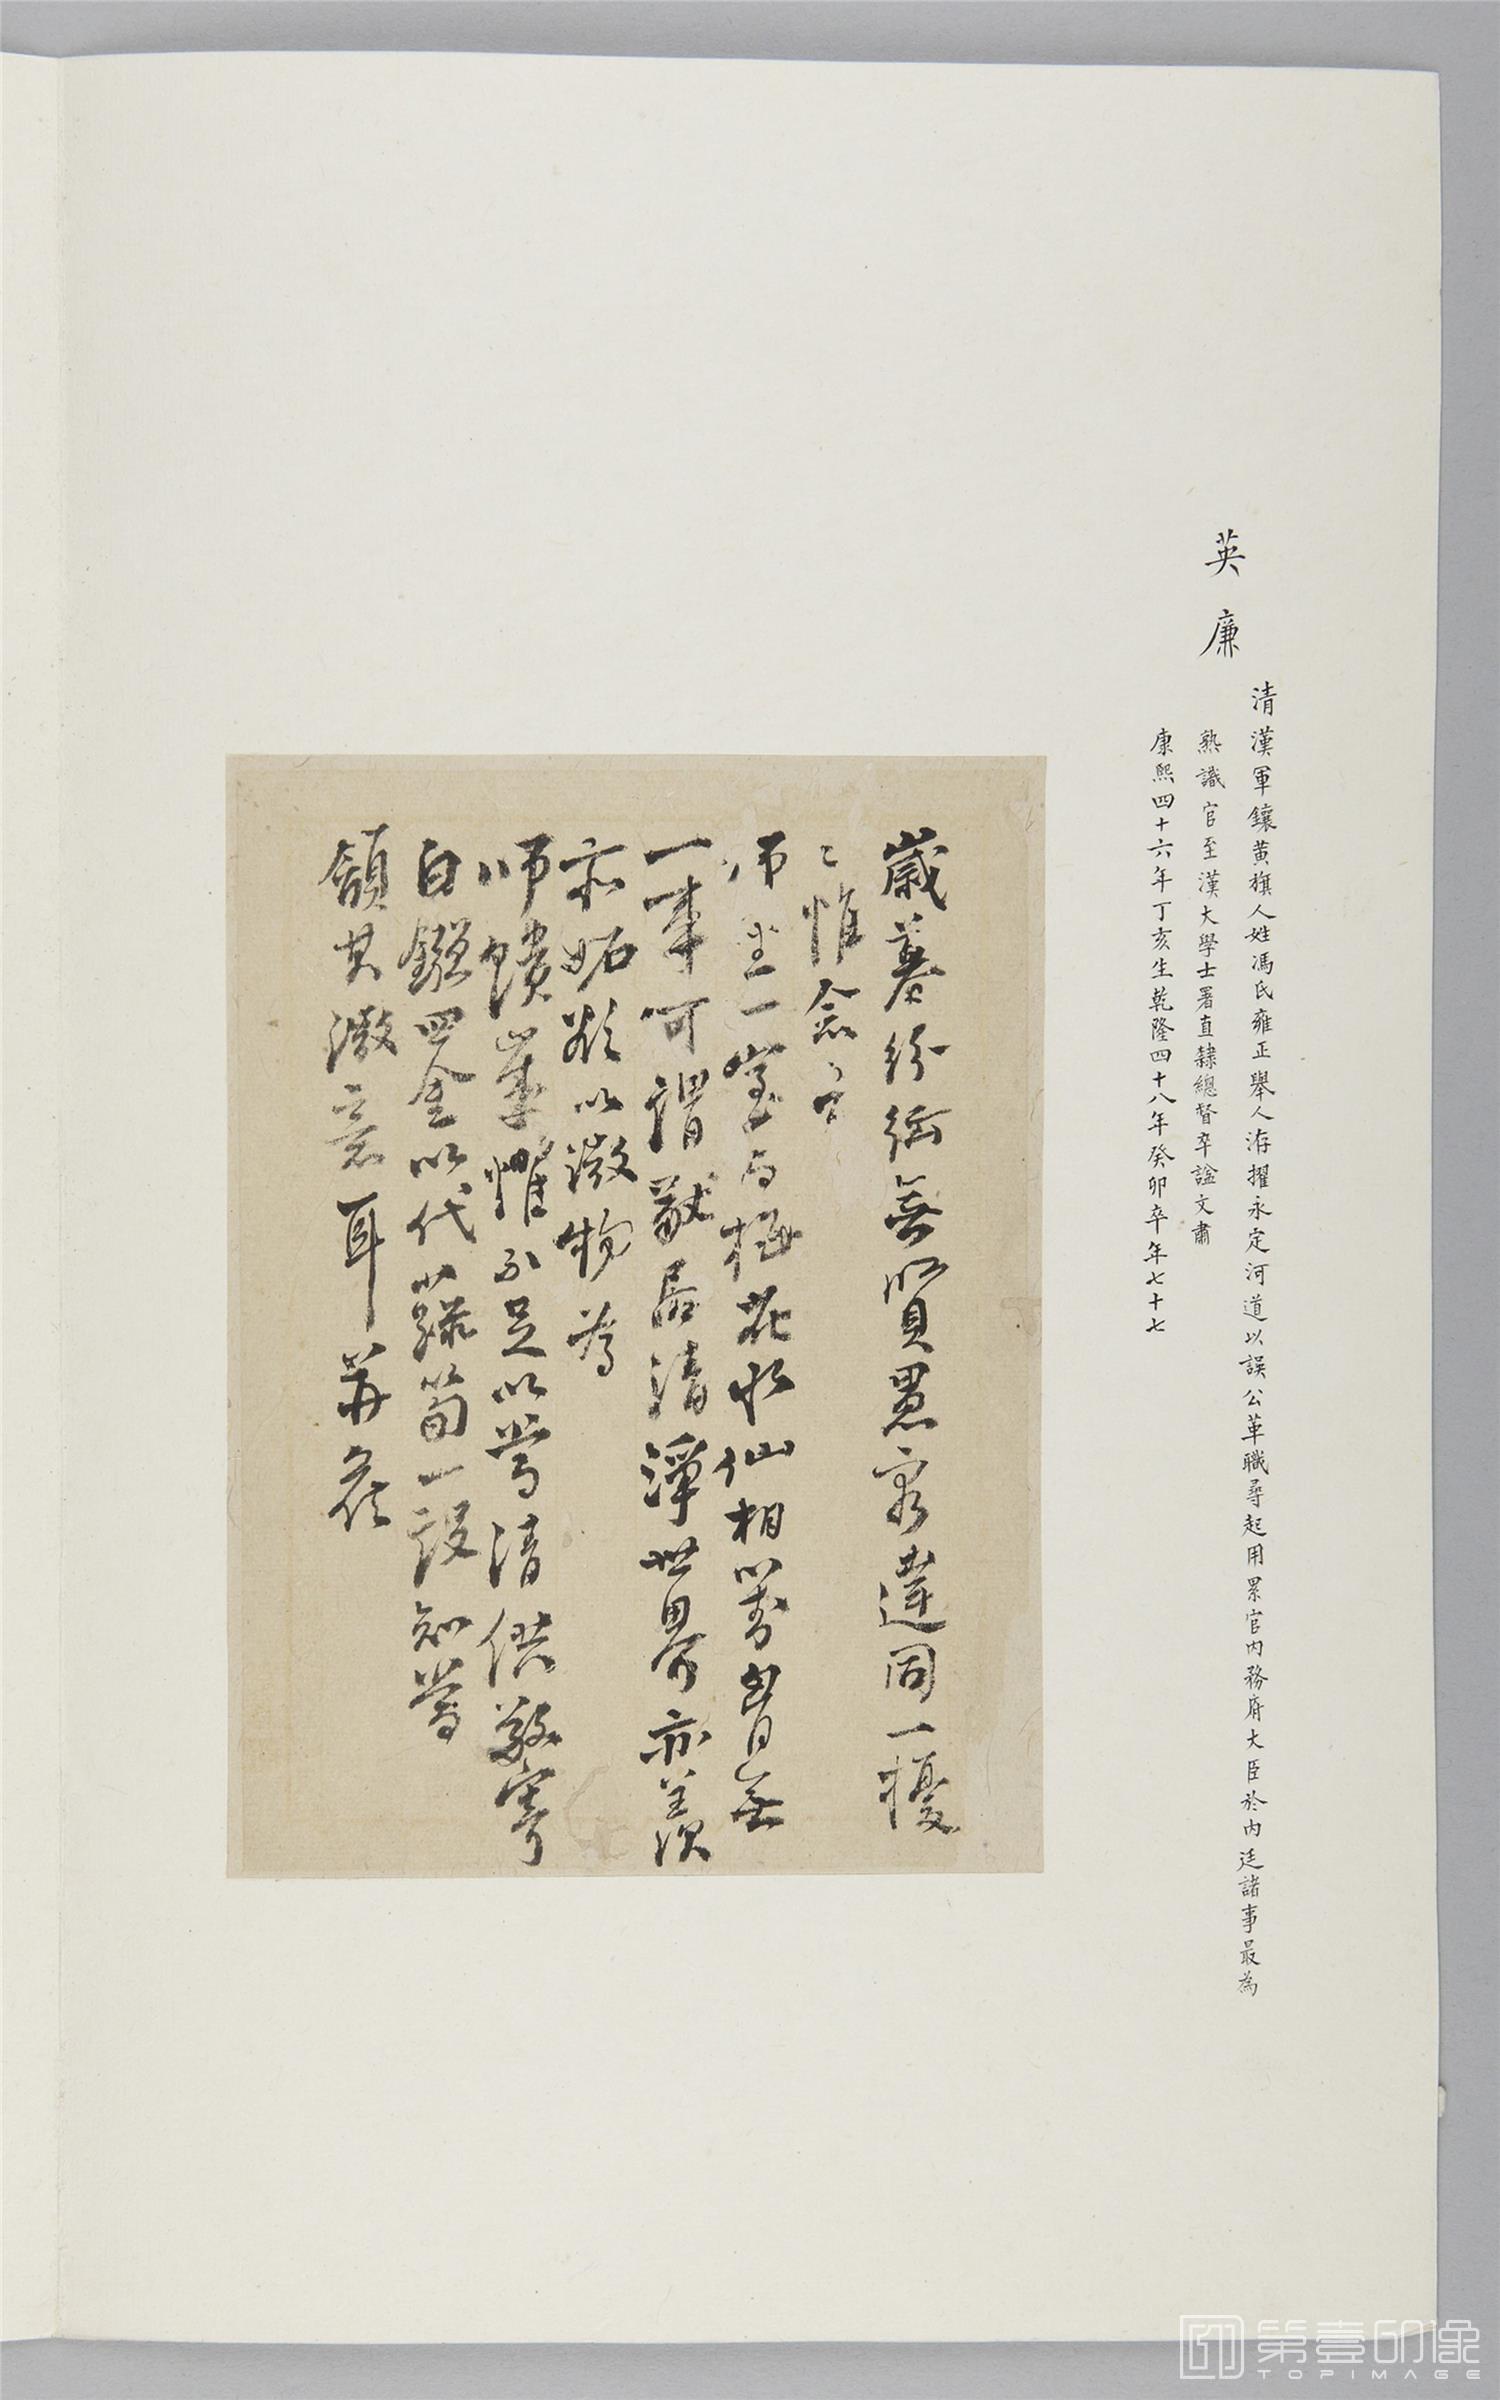 英廉
清漢軍鑲黃旗人姓馮氏雍正舉人洊擢永定河道以誤公革職尋起用累官內務府大臣於內廷諸事最為
熟識官至漢大學士署直隸總督卒諡文肅
康熙四十六年丁亥生乾隆四十八年癸卯卒年七十七
歲暮紛綸無賢愚窮達同一擾
〻惟念言
師坐一室与梅花水仙相對胷無
一事可謂嚴居清淨世界亦羨
亦妬欲以微物為
師饋筆懼不足以當清供敬寄
白鏹四金以代蔬筍一設知當
領其微意耳
第壹印像
TOPIMAGE